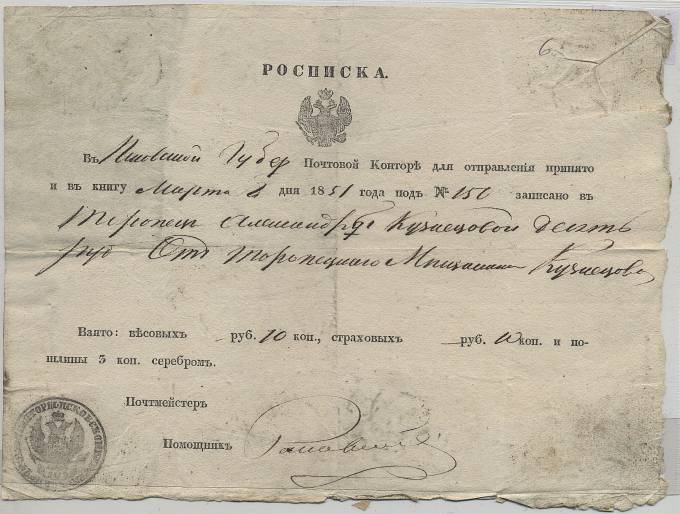 6.
РОСПИСКА.
Въ Псковской Губер Почтовой Конторѣ для отправленія принято
и въ книгу Марта 2 дня 1851 года подъ № 150 записано въ
Торопецъ Александрѣ Кузнецовой десять
руб Отъ Торопецкаго Мѣщанина Кузнецова
Взято: вѣсовыхъ руб. 10 коп., страховыхъ руб. 10 коп. и по-
шлины 3 коп. серебромъ.
Почтмейстеръ
Помощникъ
КОНТОРЫ ПСКОВСКОЙ